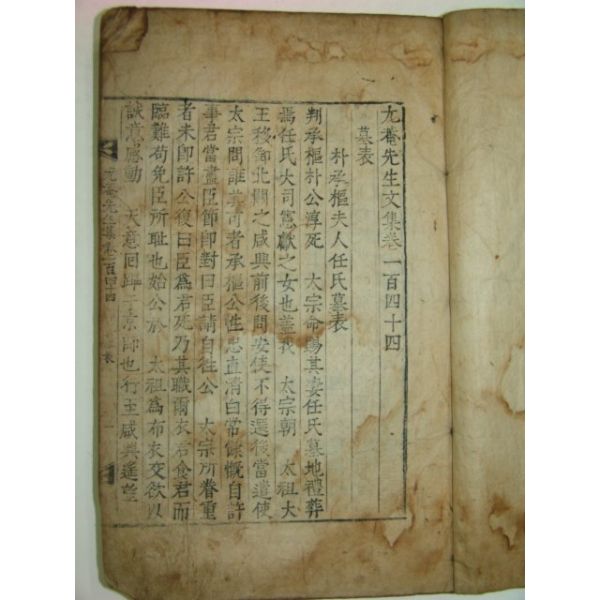 尤菴先生文集卷一百四十四
墓表
朴承樞夫人任氏墓表
判承樞朴公淳死 太宗命賜其妻任氏墓地禮葬
焉任氏大司憲獻之女也蓋我 太宗朝 太祖大
王移御北關之咸興前後問安使不得還後當遣使
太宗問誰可者承樞公性忠直清白常慷慨自許
事君當盡臣節卽對曰臣請自往公 太宗所眷重
者未卽許公復曰臣爲君死乃其職爾衣君食君而
臨難苟免臣所恥也始公於 太祖爲布衣交欲以
誠意感動 天意回 也行至咸興遙望
尤菴先生集卷一百四十四 表 一